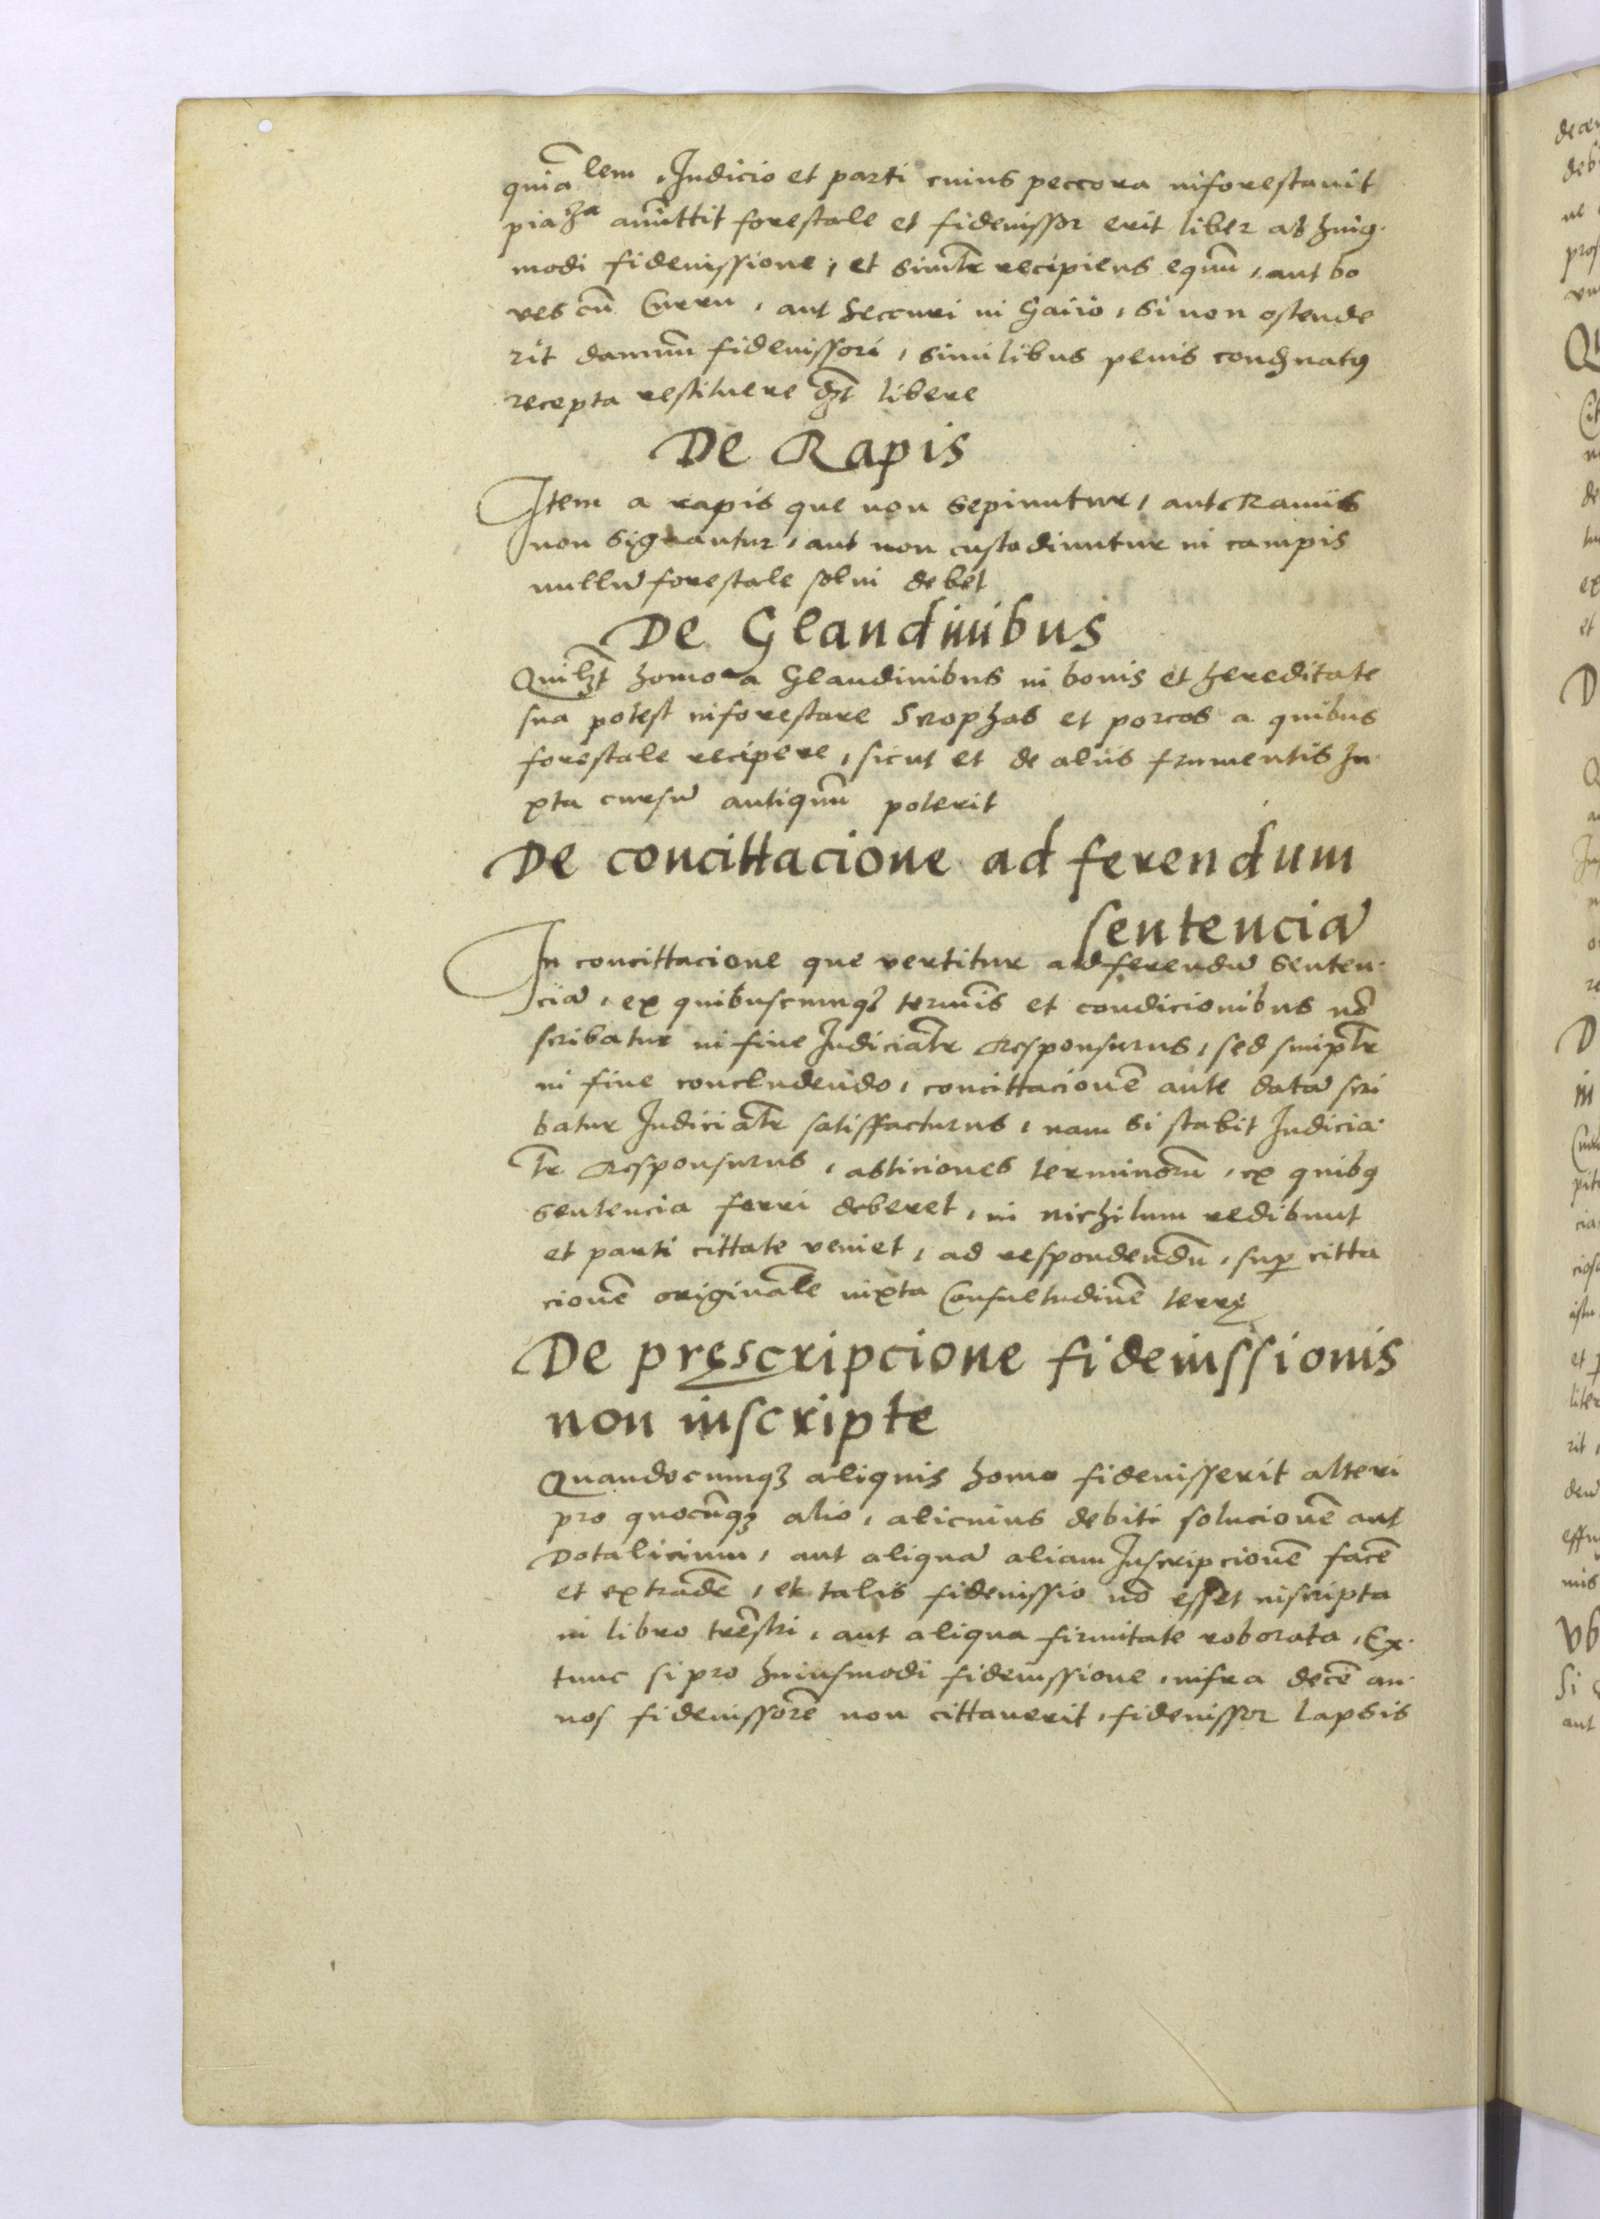 quiālem Judicio et parti cuius peccora inforestauit
piaȝᵃ amittit forestale et fideiussor erit liber ab huiꝰ
modi fideiussione, et simtr̄ recipiens equū, aut bo
ves cū Curru, aut Seccuri in Gaiio, si non ostende
rit damnum fideiussori, similibus penis condȝnatꝰ
recepta restituere dȝt libere
De Rapis
Item a rapis que non sepiuntur, aut Ramiis
non signantur, aut non custodiuntur in campis
nullu̅ forestale solui debet
De Glandinibus
Quilȝt homo a Glandinibus in bonis et hereditate
sua potest inforestare Srophas et porcos a quibus
forestale recipere, sicut et de aliis frumentis Ju
xta cursu̅ antiquū poterit
De concittacione ad ferendum
sentencia̅
In concittacione que vertitur ad ferendu̅ senten
cia̅, ex quibuscumqȝ termīs et condicionibus nō
scribatur in fine Judiciatr̄ Responsurus, sed simptr̄
in fine concludendo, concittacionē ante data̅ scri
batur Judiciatr̄ satisffacturus, nam si stabit Judicia
tr̄ Responsurus, asticiones terminorū, ex quibꝰ
sentencia ferri deberet, in nichilum redibunt
et parti cittate veniet, ad respondendū, suꝑ citta
cionē originalē iuxta Consuetudinē terrę
De pręscripcione fideiussionis
non inscripte
Quandocumqȝ aliquis homo fideiusserit alteri
pro quocūqȝ alio, alicuius debiti solucionē aut
Dotalicium, aut aliqua̅ aliam Inscripcionē facē
et extradē, et talis fideiussio nō esset inscripta
in libro trēstri, aut aliqua firmitate roborata, Ex
tunc si pro huiusmodi fideiussione, infra decē an
nos fideiussorē non cittauerit, fideiussor Lapsis